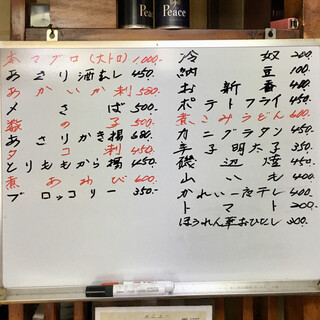 Peace
Peace
本マグロ(大トロ) 1000-
あさり酒むし 450.
あかいか刺 580.
〆さば 500-
数の子 500-
あさりかき揚 680.
タコ刺 450.
とりももから揚 450.
煮あわび 600-
ブロッコリー 350-
冷奴 200
納豆 100
お新香 400
ポテトフライ 450
煮こみうどん 600
カニグラタン 450
辛子明太子 350
磯辺焼 450
山いも 400
かれい一夜干し 400
トマト 200
ほうれん草おひたし 300.